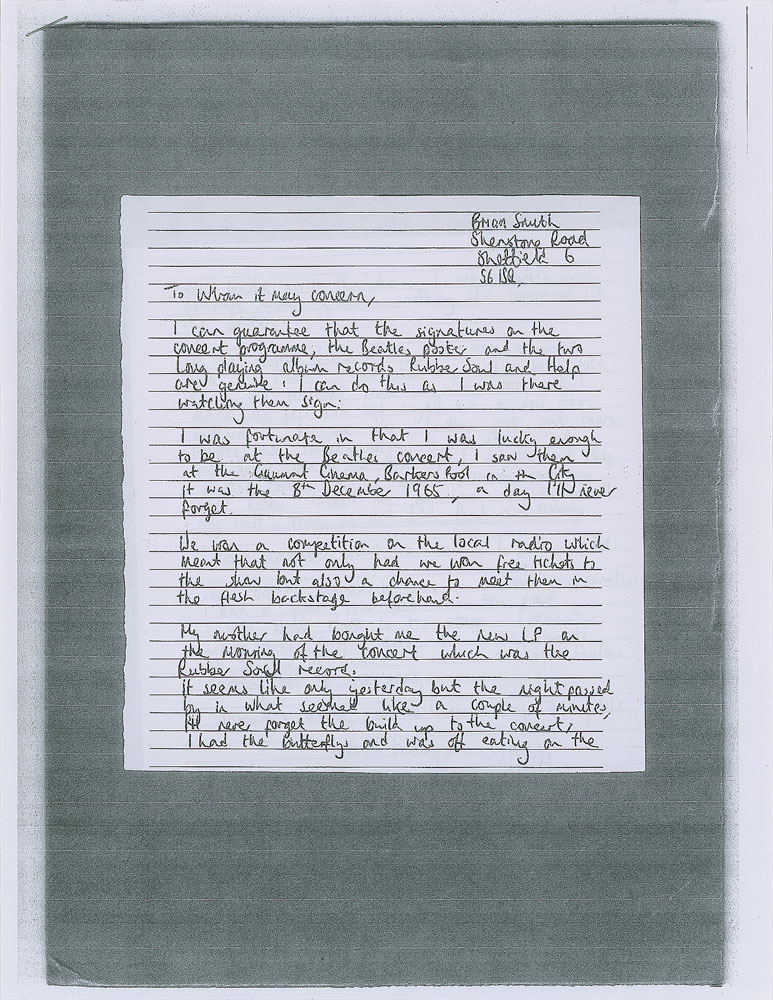 Brian Smith
Shenstone Road
Sheffield 6
S6 1SQ,
To Whom it May concern,
I can guarantee that the signatures on the
concert programme, the Beatles poster and the two
Long playing album records Rubber Soul and Help
are genuine. I can do this as I was there
watching them sign.
I was fortunate in that I was lucky enough
to be at the Beatles concert, I saw them
at the Gaumont Cinema, Barkers Pool in the City
it was the 8th December 1965, a day I'll never
forget.
We won a competition on the local radio which
meant that not only had we won free tickets to
the show but also a chance to meet them in
the flesh backstage beforehand.
My mother had bought me the new LP on
the morning of the concert which was the
Rubber Soul record.
it seems like only yesterday but the night passed
by in what seemed like a couple of minutes,
I'll never forget the build up to the concert,
I had the butterflys and was off eating on the